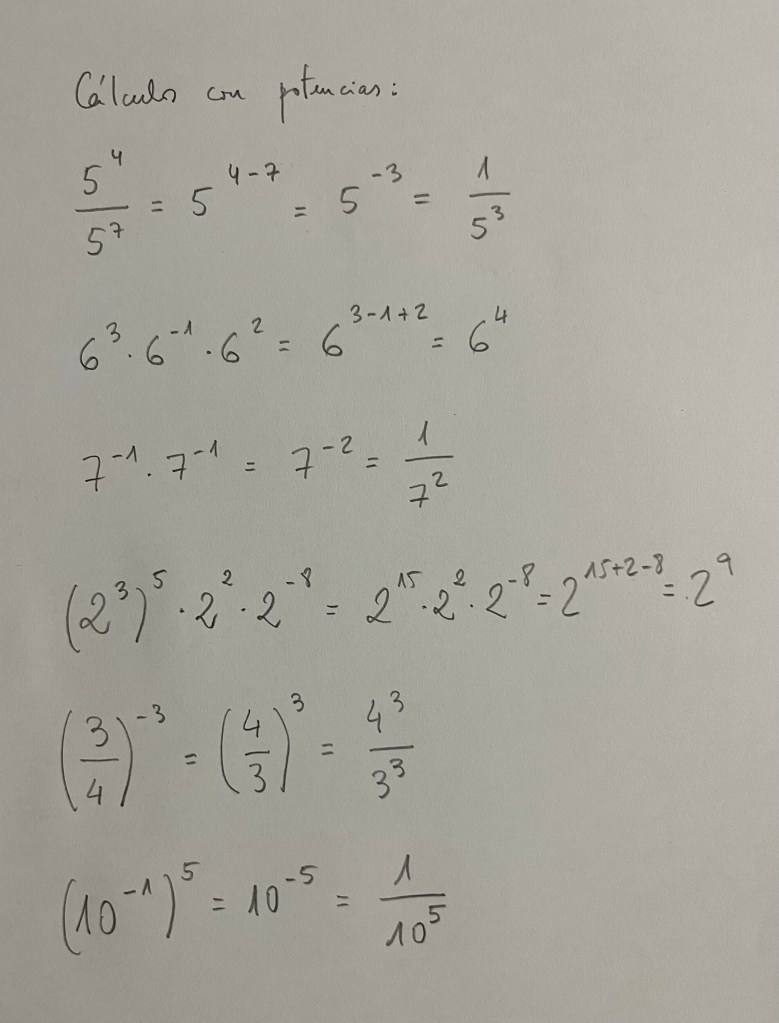 Cálculo con potencias:
5⁴/5⁷ = 5⁴⁻⁷ = 5⁻³ = 1/5³
6³ · 6⁻¹ · 6² = 6³⁻¹⁺² = 6⁴
7⁻¹ · 7⁻¹ = 7⁻² = 1/7²
(2³)⁵ · 2² · 2⁻⁸ = 2¹⁵ · 2² · 2⁻⁸ = 2¹⁵⁺²⁻⁸ = 2⁹
(3/4)⁻³ = (4/3)³ = 4³/3³
(10⁻¹)⁵ = 10⁻⁵ = 1/10⁵